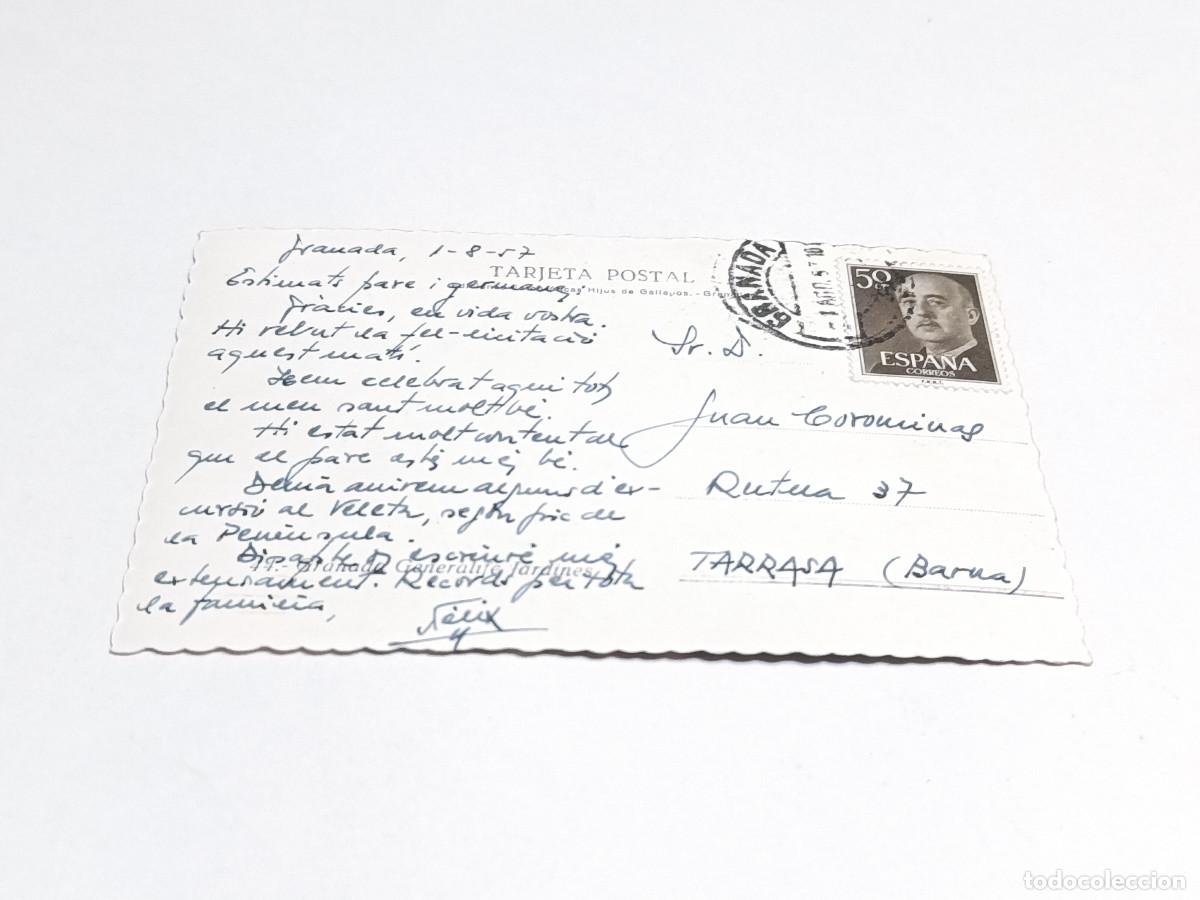 Granada, 1-8-57
TARJETA POSTAL
Hijos de Gallegos. - Gran
Estimats pare i germanes,
Gràcies, en vida vostra.
Hi rebut la fel-icitació
aquest matí.
Hem celebrat aquí tots
el meu sant molt bé.
Hi estat molt content de
que el pare estés més bé.
Demà anirem alguns d'ex-
cursió al Veleta, segon pic de
la Península.
Dissapte us escriuré més
extensament. Records per tota
la família,
Fèlix
44.- Granada Generalife Jardines
Sr. D.
Juan Corominas
Rutlla 37
TARRASA (Barna)
GRANADA
50 CT
ESPAÑA
CORREOS
F.N.M.T.
todocoleccion